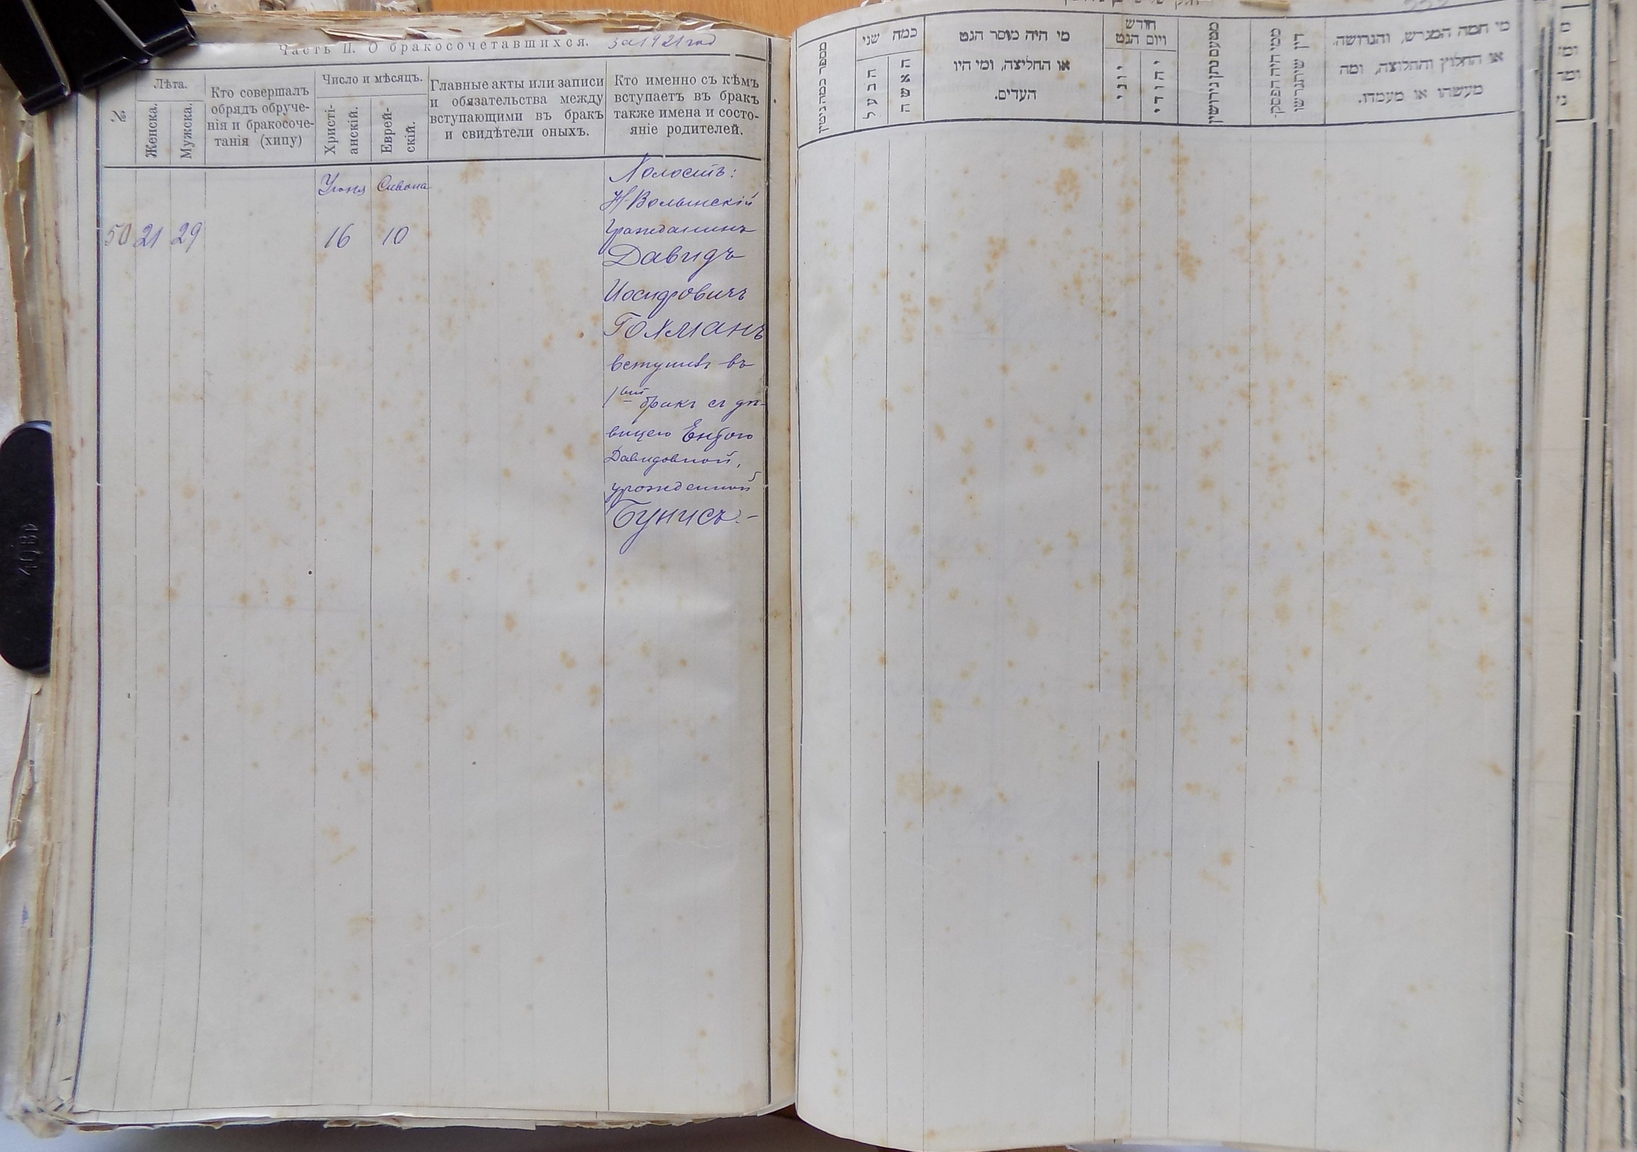 Часть II. О бракосочетавшихся. за 1921 год
№
Лѣта.
Женска.
Мужска.
Кто совершалъ
обрядъ обруче-
нія и бракосоче-
танія (хипу)
Число и мѣсяцъ.
Христі-
анскій.
Еврей-
скій.
Главные акты или записи
и обязательства между
вступающими въ бракъ
и свидѣтели оныхъ.
Кто именно съ кѣмъ
вступаетъ въ бракъ
также имена и состо-
яніе родителей.
50 21 29
Іюня Сивана
16 10
Холостъ:
Н-Волынскій
Гражданинъ
Давидъ
Иосифовичъ
Гохманъ
вступилъ въ
1ый бракъ съ дѣ-
вицею Ентою
Давидовной,
урожденной
Бунисъ.-
מספר כמה גיטין
כמה שני
הבעל
האשה
מי היה מוסר הגט
או החליצה, ומי היו
העדים.
חודש
ויום הגט
יוני
יהודי
מטעם נתן גירושין
ממי היה הפסק-
דין שיתגרשו
מי המה המגרש, והגרושה,
או החלוץ והחלוצה, ומה
מעשהו או מעמדו.